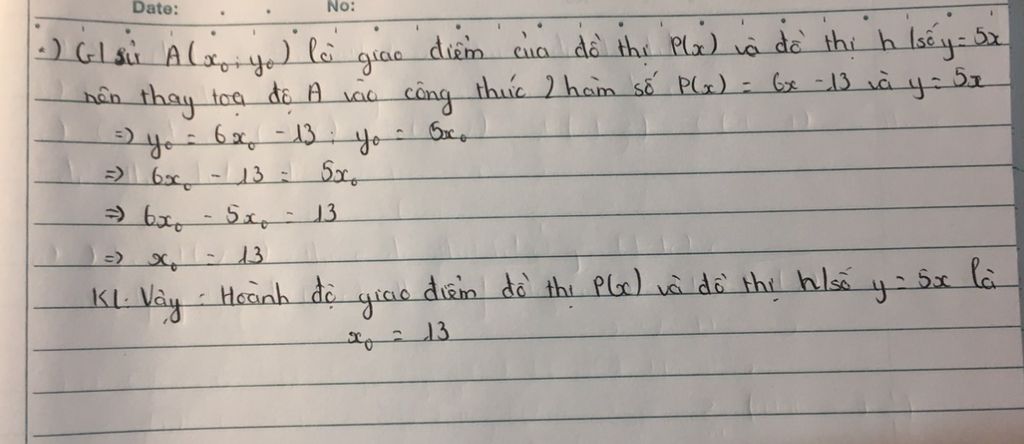 Date: . . No:
·) G/sử A(x₀; y₀) là giao điểm của đồ thị P(x) và đồ thị h/số y = 5x
nên thay toạ độ A vào công thức 2 hàm số P(x) = 6x - 13 và y = 5x
=> y₀ = 6x₀ - 13 ; y₀ = 5x₀
=> 6x₀ - 13 = 5x₀
=> 6x₀ - 5x₀ = 13
=> x₀ = 13
KL: Vậy : Hoành độ giao điểm đồ thị P(x) và đồ thị h/số y = 5x là
x₀ = 13